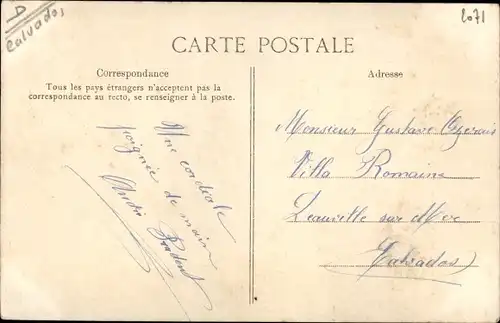 D
Calvados
2071
CARTE POSTALE
Correspondance
Tous les pays étrangers n'acceptent pas la
correspondance au recto, se renseigner à la poste.
Une cordiale
poignée de main
André
Adresse
Monsieur Gustave
Villa Romaine
Deauville sur Mer
Calvados